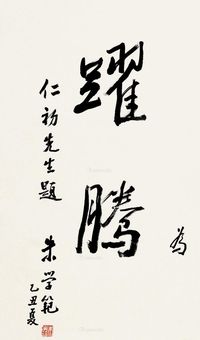 為
躍騰
仁初先生題
朱学範
乙丑夏